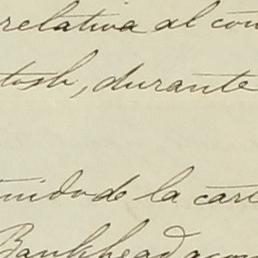 relativa al con
tosh, durante
nido de la car
Bankhead acom